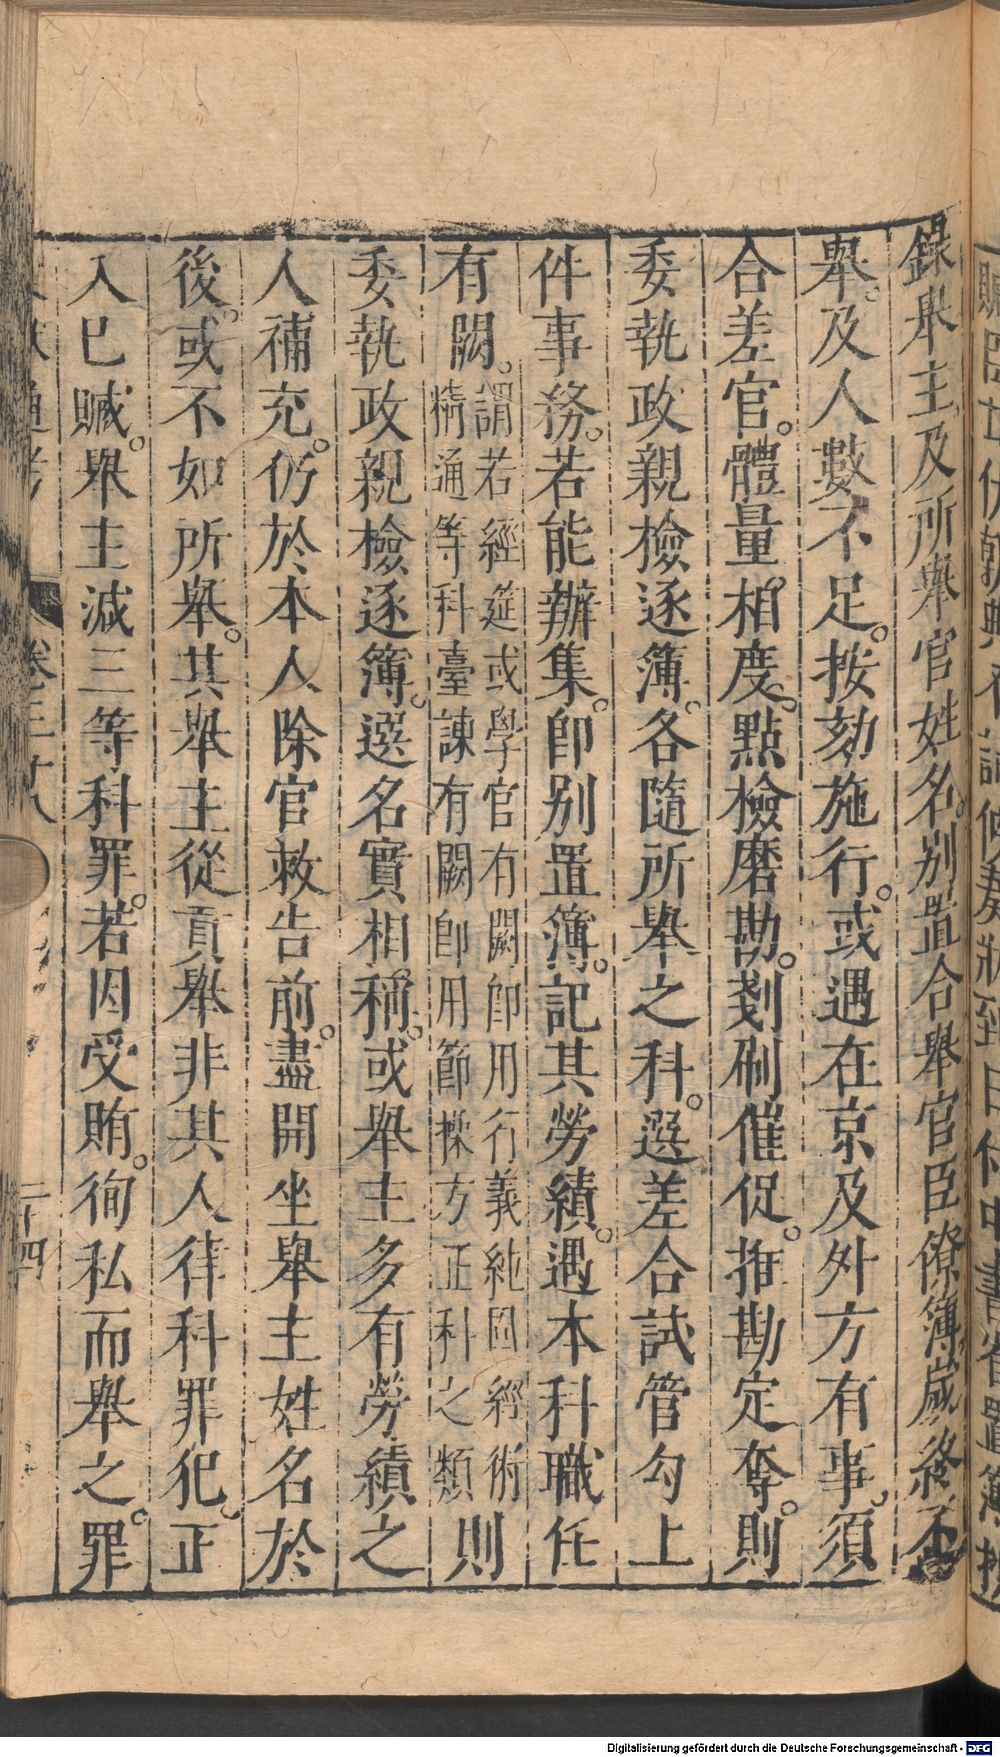 錄舉主及所舉官姓名。別置合舉官臣僚簿。歲終不
舉。及人數不足。按劾施行。或遇在京及外方有事。須
合差官。體量。相度。點檢磨勘。剗刷催促。推勘定奪。則
委執政親檢逐簿。各隨所舉之科。選差合試管勾上
件事務。若能辦集。即別置簿。記其勞績。遇本科職任
有闕。謂若經筵或學官有闕即用行義純固經術
精通等科臺諫有闕即用節操方正科之類則
委執政親檢逐簿。選名實相稱。或舉主多有勞績之
人補充。仍於本人除官敕告前。盡開坐舉主姓名於
後。或不如所舉。其舉主從貢舉非其人律科罪。犯正
入已贓。舉主減三等科罪。若因受賄。徇私而舉之。罪
卷三十八
二十四
Digitalisierung gefördert durch die Deutsche Forschungsgemeinschaft - DFG